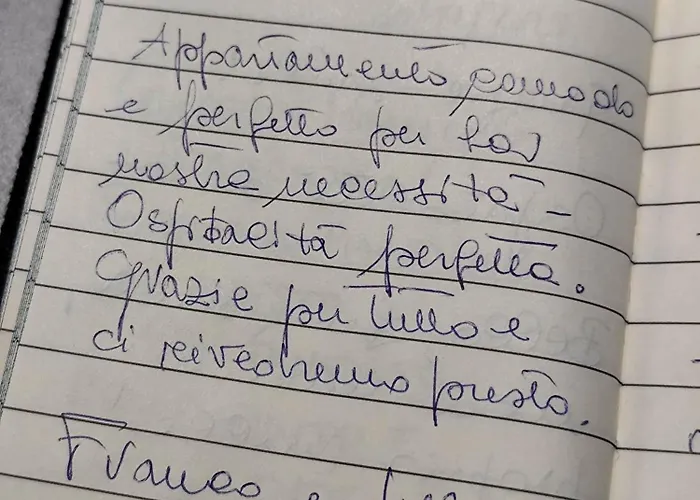 Appartamento comodo
e perfetto per la
nostra necessità -
Ospitalità perfetta.
Grazie per tutto e
ci rivedremo presto.
Franco